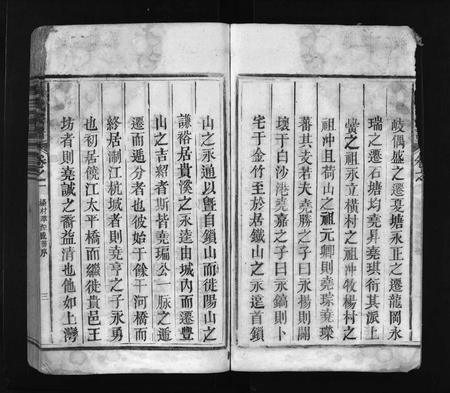 歧偶盛之遷戛塘永正之遷龍岡永
瑞之遷石塘均堯昇堯琪衍其派上
黌之祖永立橫村之祖沖牧楊村之
祖沖且荷山之祖元卿則堯琮堯璨
蕃其支若夫堯勝之子曰永揚則開
壤于白沙港堯嘉之子曰永鎬則卜
宅于金竹至於居鐵山之永逵首鎖
山之永通以曁自鎖山而徙陽山之
謙裕居貴溪之永逵由城內而遷豐
山之吉紹者斯皆堯瑥公一脉之遞
遷而遞分者也彼始于餘干河橋而
終居淛江杭城者則堯亨之子永勇
也初居饒江太平橋而繼徙貴邑王
坊者則堯誠之裔益清也他如上灣
卷之一
序
三